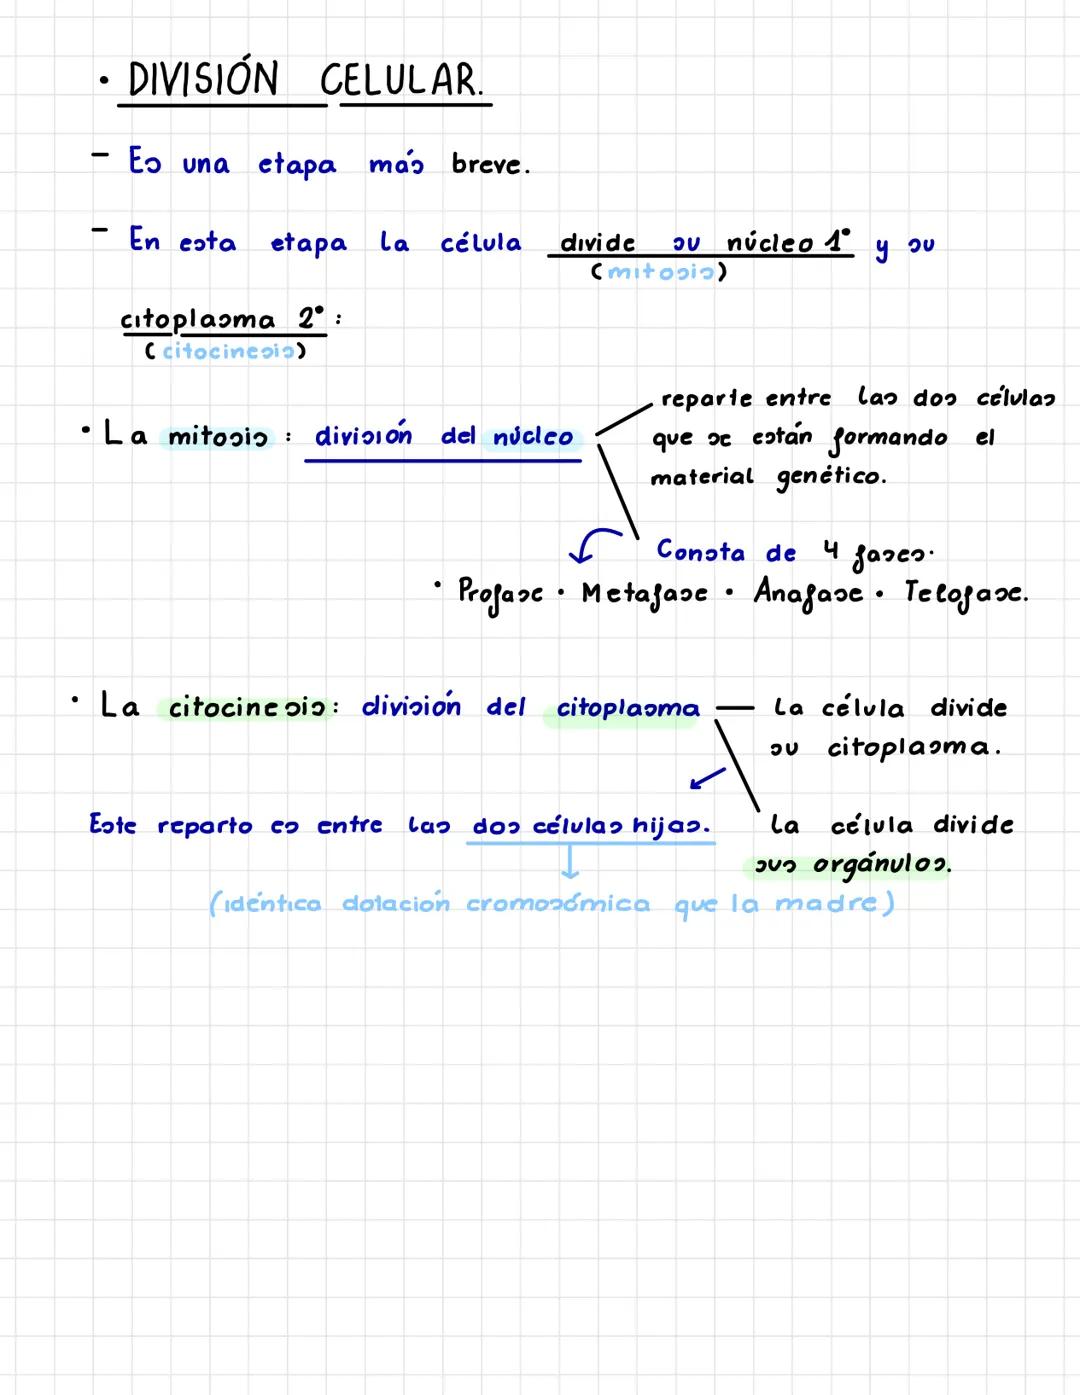 • DIVISIÓN CELULAR.
- Es una etapa más breve.
- En esta etapa la célula divide su núcleo 1º y su
(mitosis)
citoplasma 2º:
(citocinesis)
• La mitosis: división del núcleo
reparte entre las dos células
que se están formando el
material genético.
Consta de 4 fases.
• Profase • Metafase • Anafase • Telofase.
• La citocinesis: división del citoplasma — La célula divide
su citoplasma.
Este reparto es entre las dos células hijas.
La célula divide
sus orgánulos.
(idéntica dotación cromosómica que la madre)